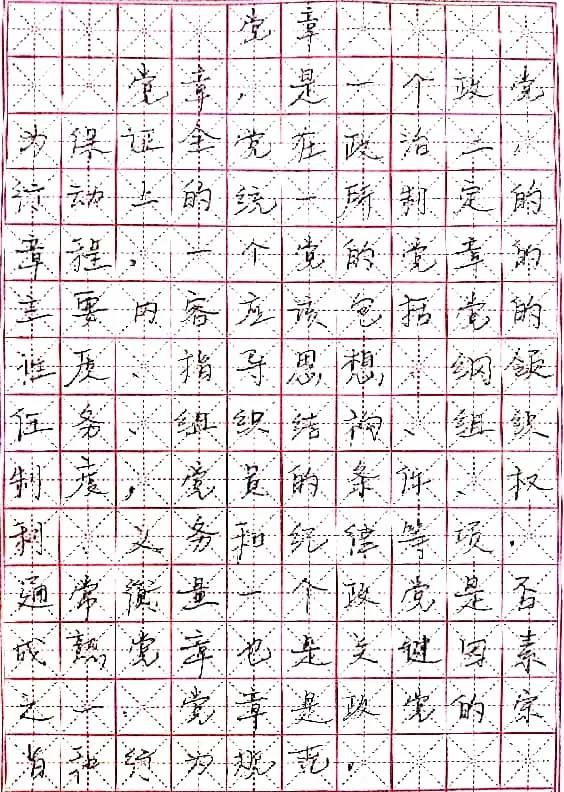 党章
党章，是一个政党
为保证全党在政治上、
行动上的统一所制定的
章程，一个党的党章的
主要内容应该包括党的
性质、指导思想、纲领
任务、组织结构、组织
制度，党员的条件、权
利、义务和纪律等项．
通常衡量一个政党是否
成熟党章也是关键因素
之一．党章是政党的宗
旨和行为规范．